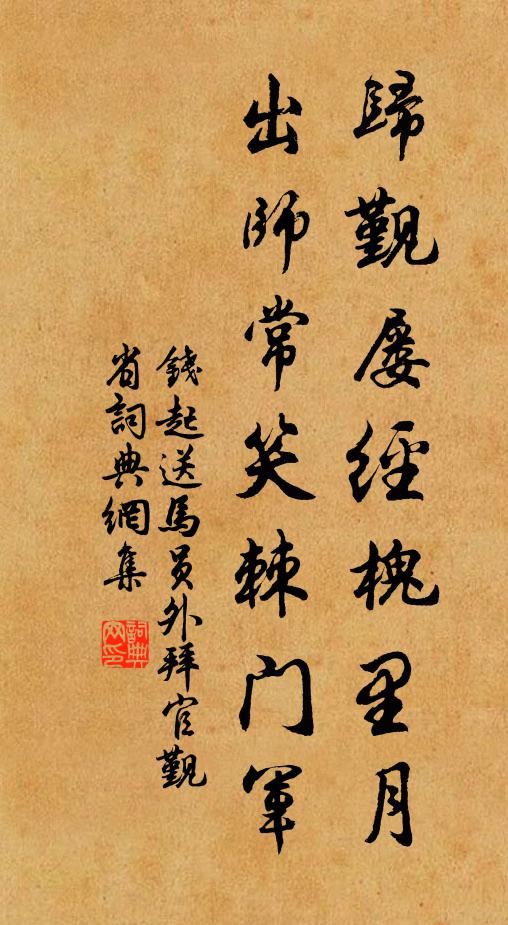 歸覲屡經槐里月
出師常笑棘門軍
錢起送馬員外拜官覲
省詞典網集
詞典
网印